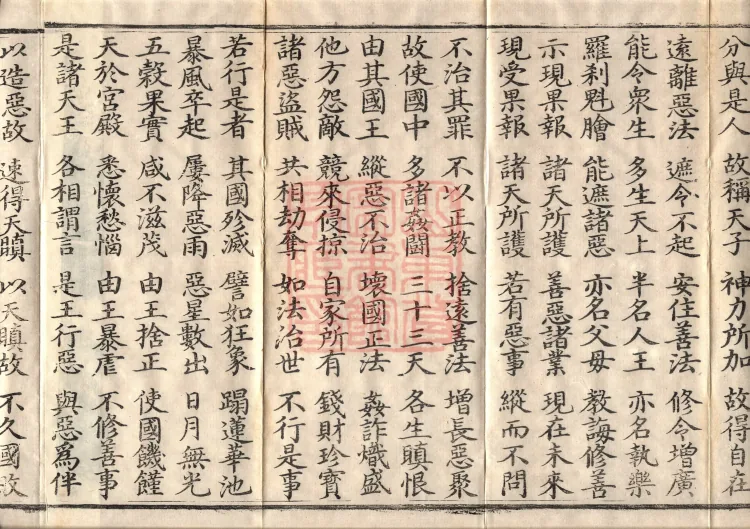 分與是人 故稱天子 神力所加 故得自在
遠離惡法 遮令不起 安住善法 修令增廣
能令衆生 多生天上 半名人王 亦名執樂
羅刹魁膾 能遮諸惡 亦名父母 教誨修善
示現果報 諸天所護 善惡諸業 現在未來
現受果報 諸天所護 若有惡事 縱而不問
不治其罪 不以正教 捨遠善法 增長惡聚
故使國中 多諸姦鬪 三十三天 各生瞋恨
由其國王 縱惡不治 壞國正法 姦詐熾盛
他方怨敵 競來侵掠 自家所有 錢財珍寶
諸惡盜賊 共相劫奪 如法治世 不行是事
若行是者 其國殄滅 譬如狂象 蹋蓮華池
暴風卒起 屢降惡雨 惡星數出 日月無光
五穀果實 咸不滋茂 由王捨正 使國饑饉
天於宮殿 悉懷愁惱 由王暴虐 不修善事
是諸天王 各相謂言 是王行惡 與惡為伴
以造惡故 速得天瞋 以天瞋故 不久國敗